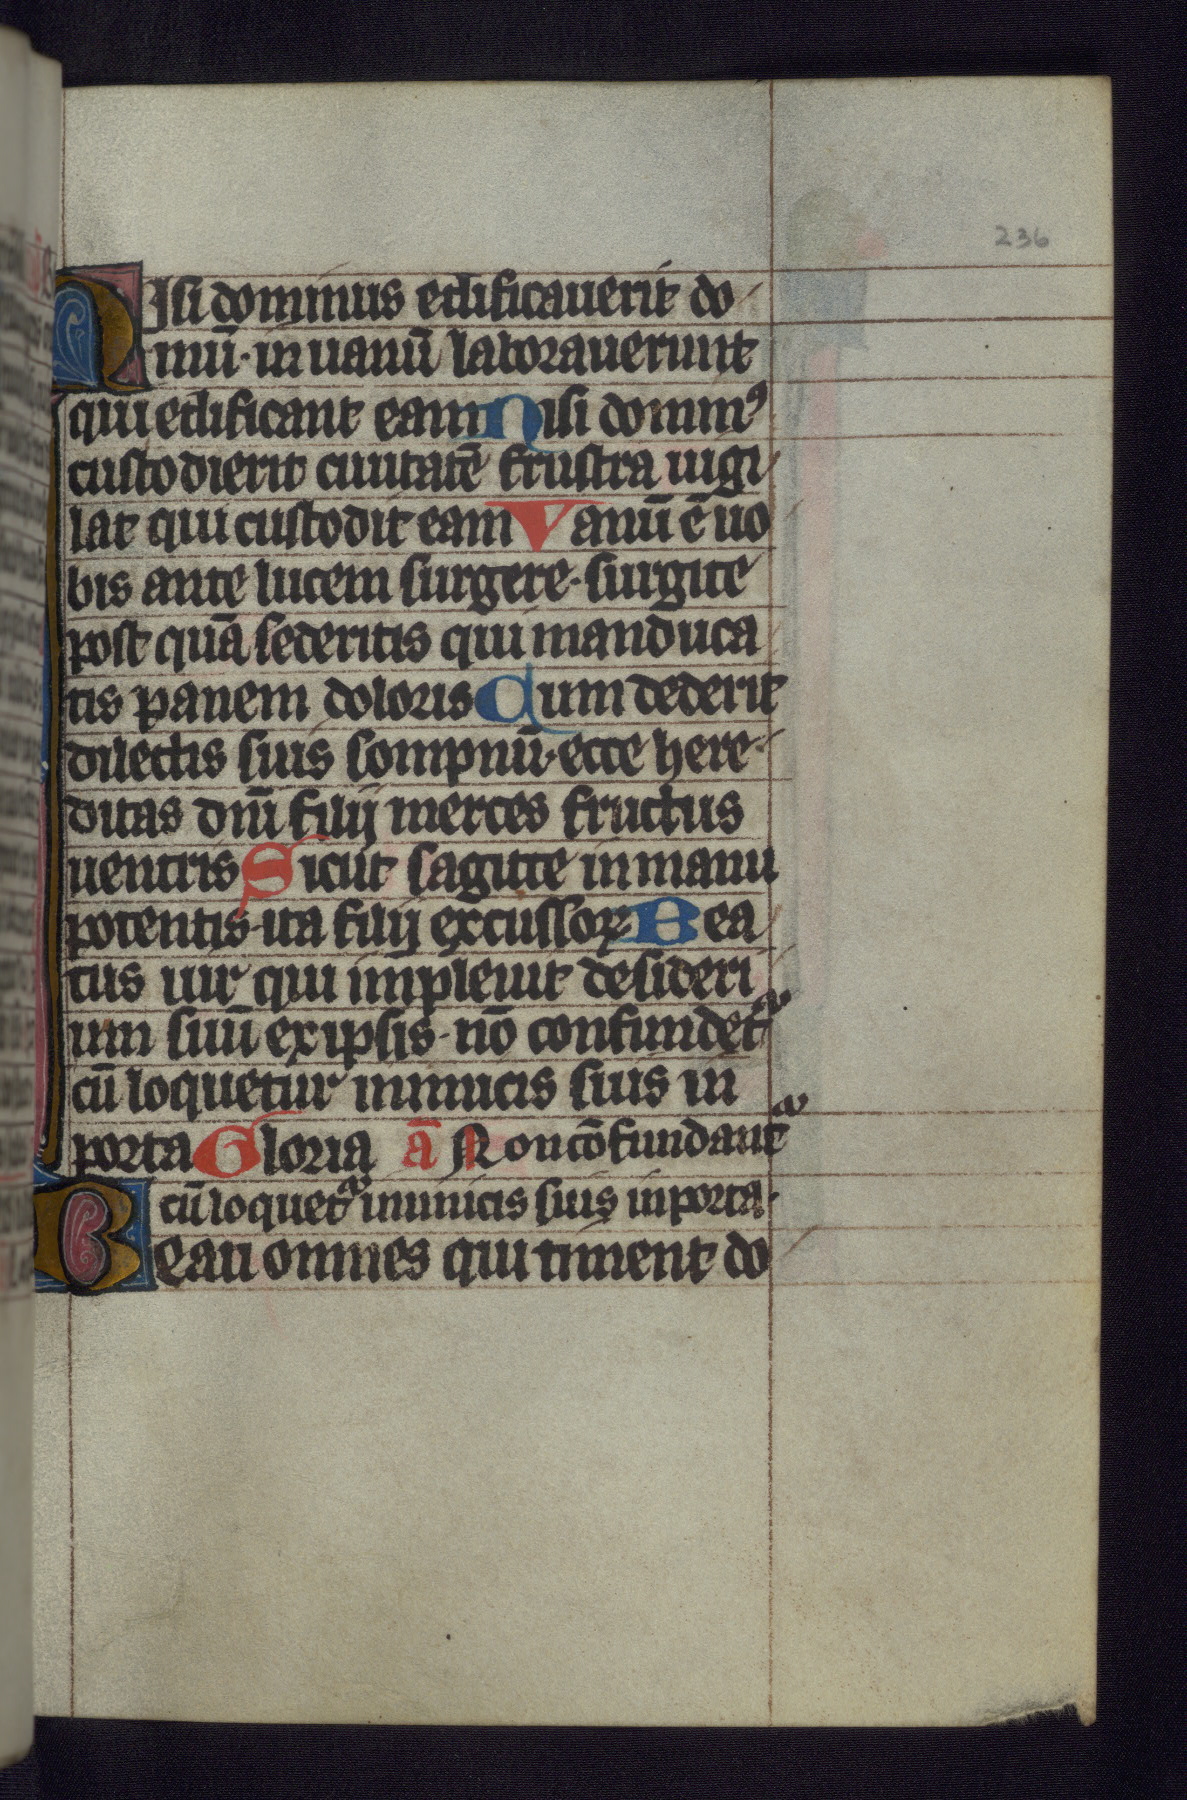 236
NIsi dominus edificauerit do
mū · in uanū laborauerunt
qui edificant eam Nisi dominꝰ
custodierit ciuitatē frustra uigi
lat qui custodit eam Vanū ē uo
bis ante lucem surgere · surgite
post quā sederitis qui manduca
tis panem doloris Cum dederit
dilectis suis sompnū · ecce here
ditas dn̄i filij merces fructus
uentris Sicut sagitte in manu
potentis · ita filij excussoꝝ Bea
tus uir qui impleuit desideri
um suū ex ipsis · nō confundetᷣ
cū loquetur inimicis suis in
porta Gloria ā Non cōfundantᷣ
cū loquetᷣ inimicis suis in porta ·
Beati omnes qui timent do